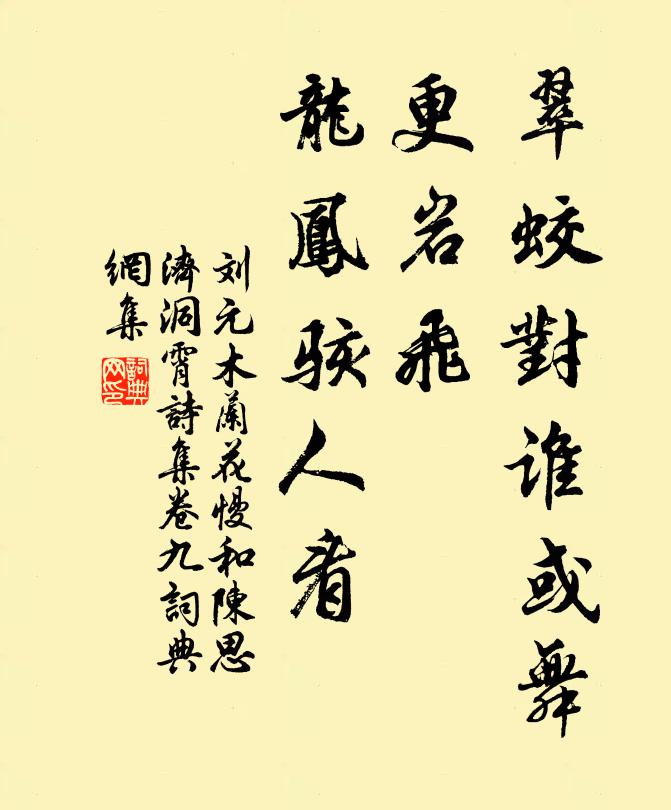 翠蛟對谁或舞
更岩飛
龍鳳駭人者
刘元木蘭花慢和陳思
濟洞霄詩集卷九詞典
網集
詞典
网印